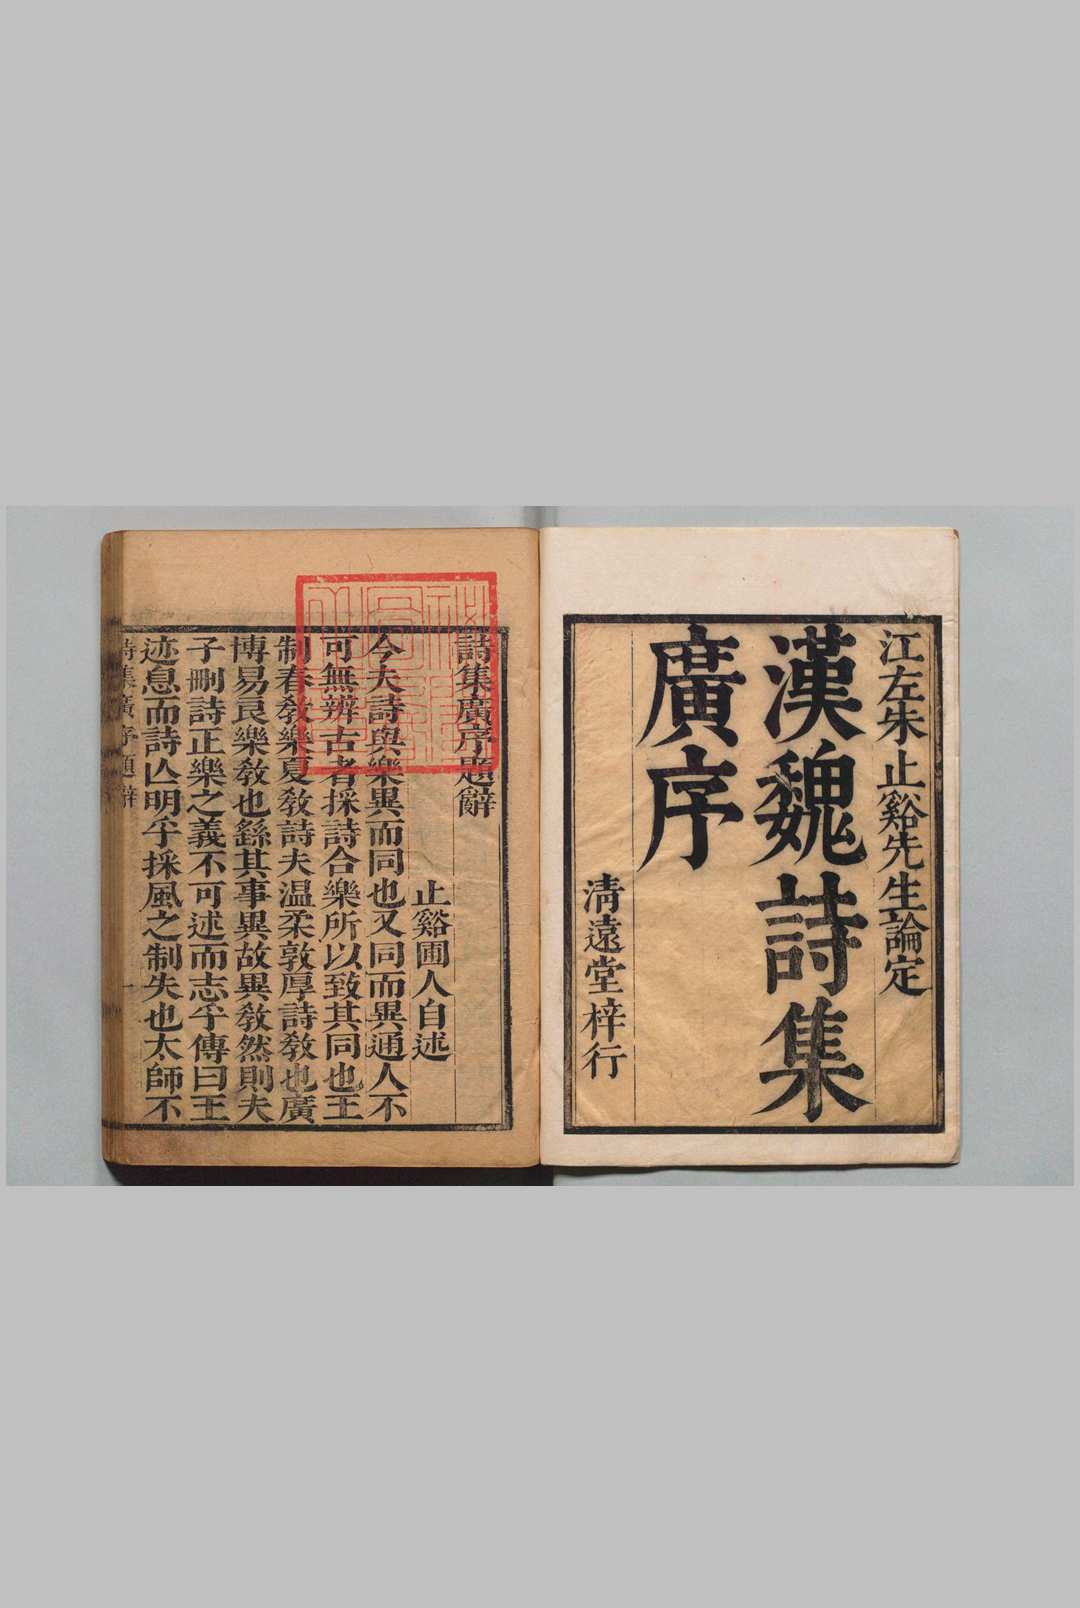 江左朱止谿先生論定
漢魏詩集
廣序
清遠堂梓行
詩集廣序題辭
止谿圃人自述
今夫詩與樂異而同也又同而異通人不
可無辨古者採詩合樂所以致其同也王
制春敎樂夏敎詩夫温柔敦厚詩敎也廣
博易良樂敎也繇其事異故異敎然則夫
子刪詩正樂之義不可述而志乎傳曰王
迹息而詩亾明乎採風之制失也太師不
詩集廣序題辭
一